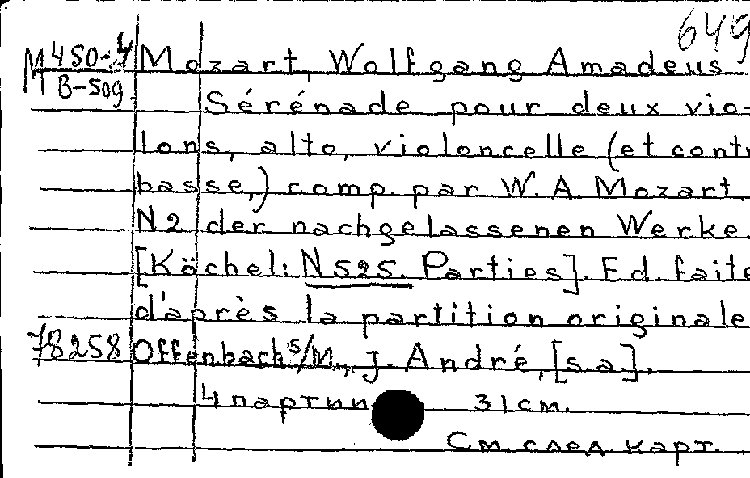 649
M 450-4 Mozart, Wolfgang Amadeus
M B-509
Sérénade pour deux vio-
lons, alto, violoncelle (et contr
basse,) comp. par W. A. Mozart.
N2 der nachgelassenen Werke.
[Köchel: N 525. Parties]. Ed. faite
d'après la partition originale
78258 Offenbach s/M., J. André, [s.a].
4 партии 31 см.
См. след. карт.